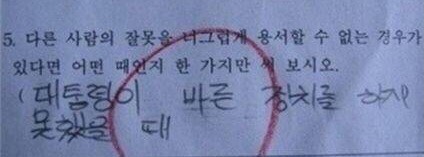 5. 다른 사람의 잘못을 너그럽게 용서할 수 없는 경우가
있다면 어떤 때인지 한 가지만 써 보시오.
( 대통령이 바른 정치를 하지
못했을 때